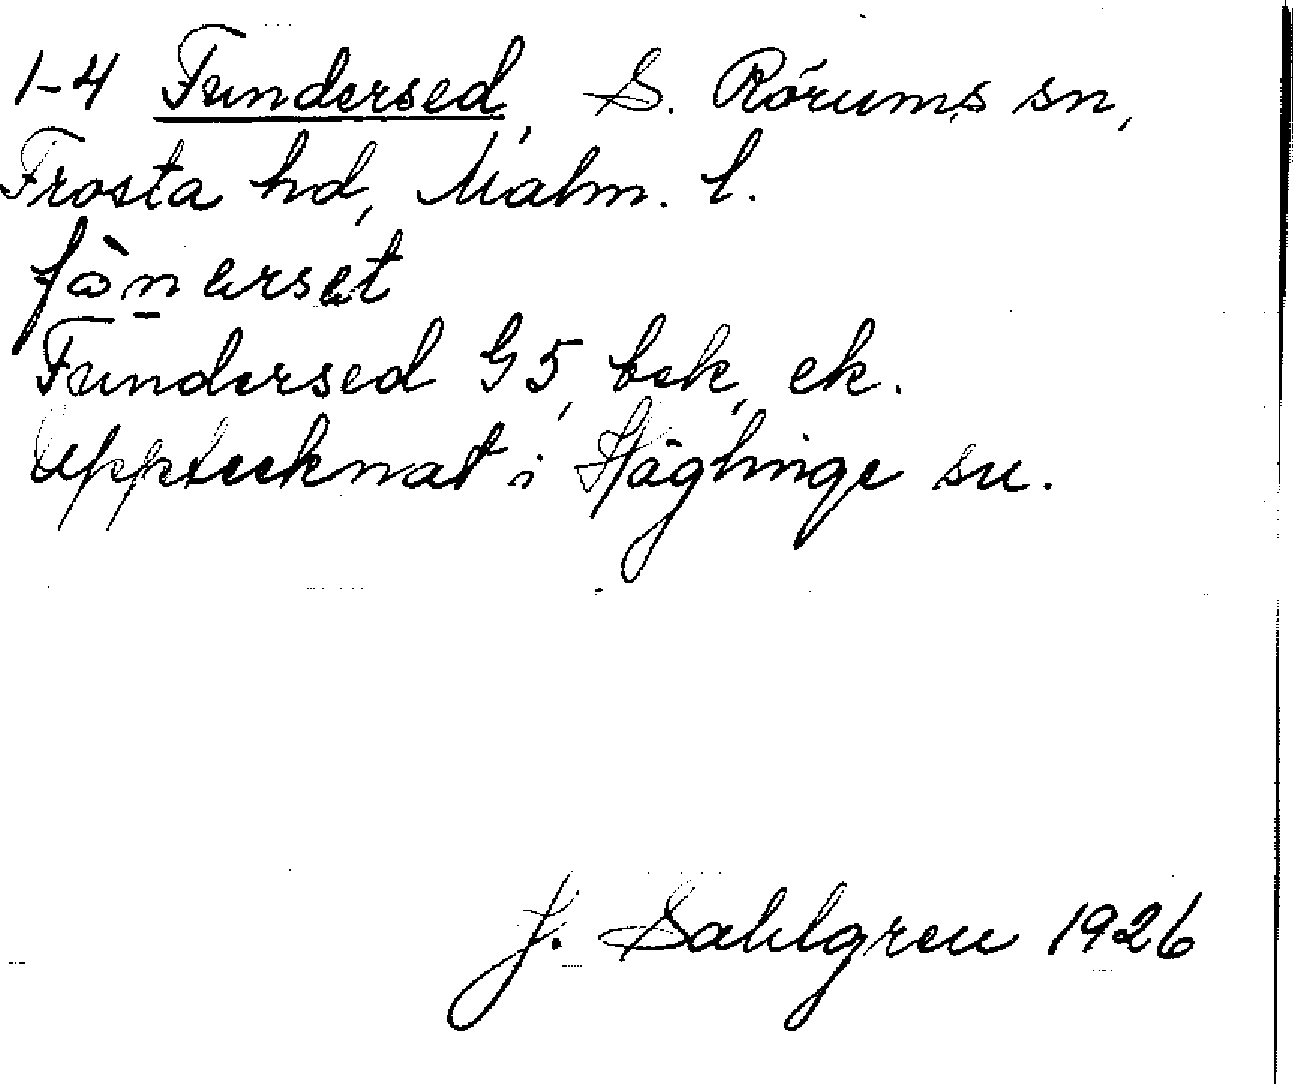 1-4 Fundersed, S. Rörums sn,
Frosta hd, Malm. l.
Fundersed G5, bek, ek.
Upptecknat i Häglinge sn.
J. Sahlgren 1926